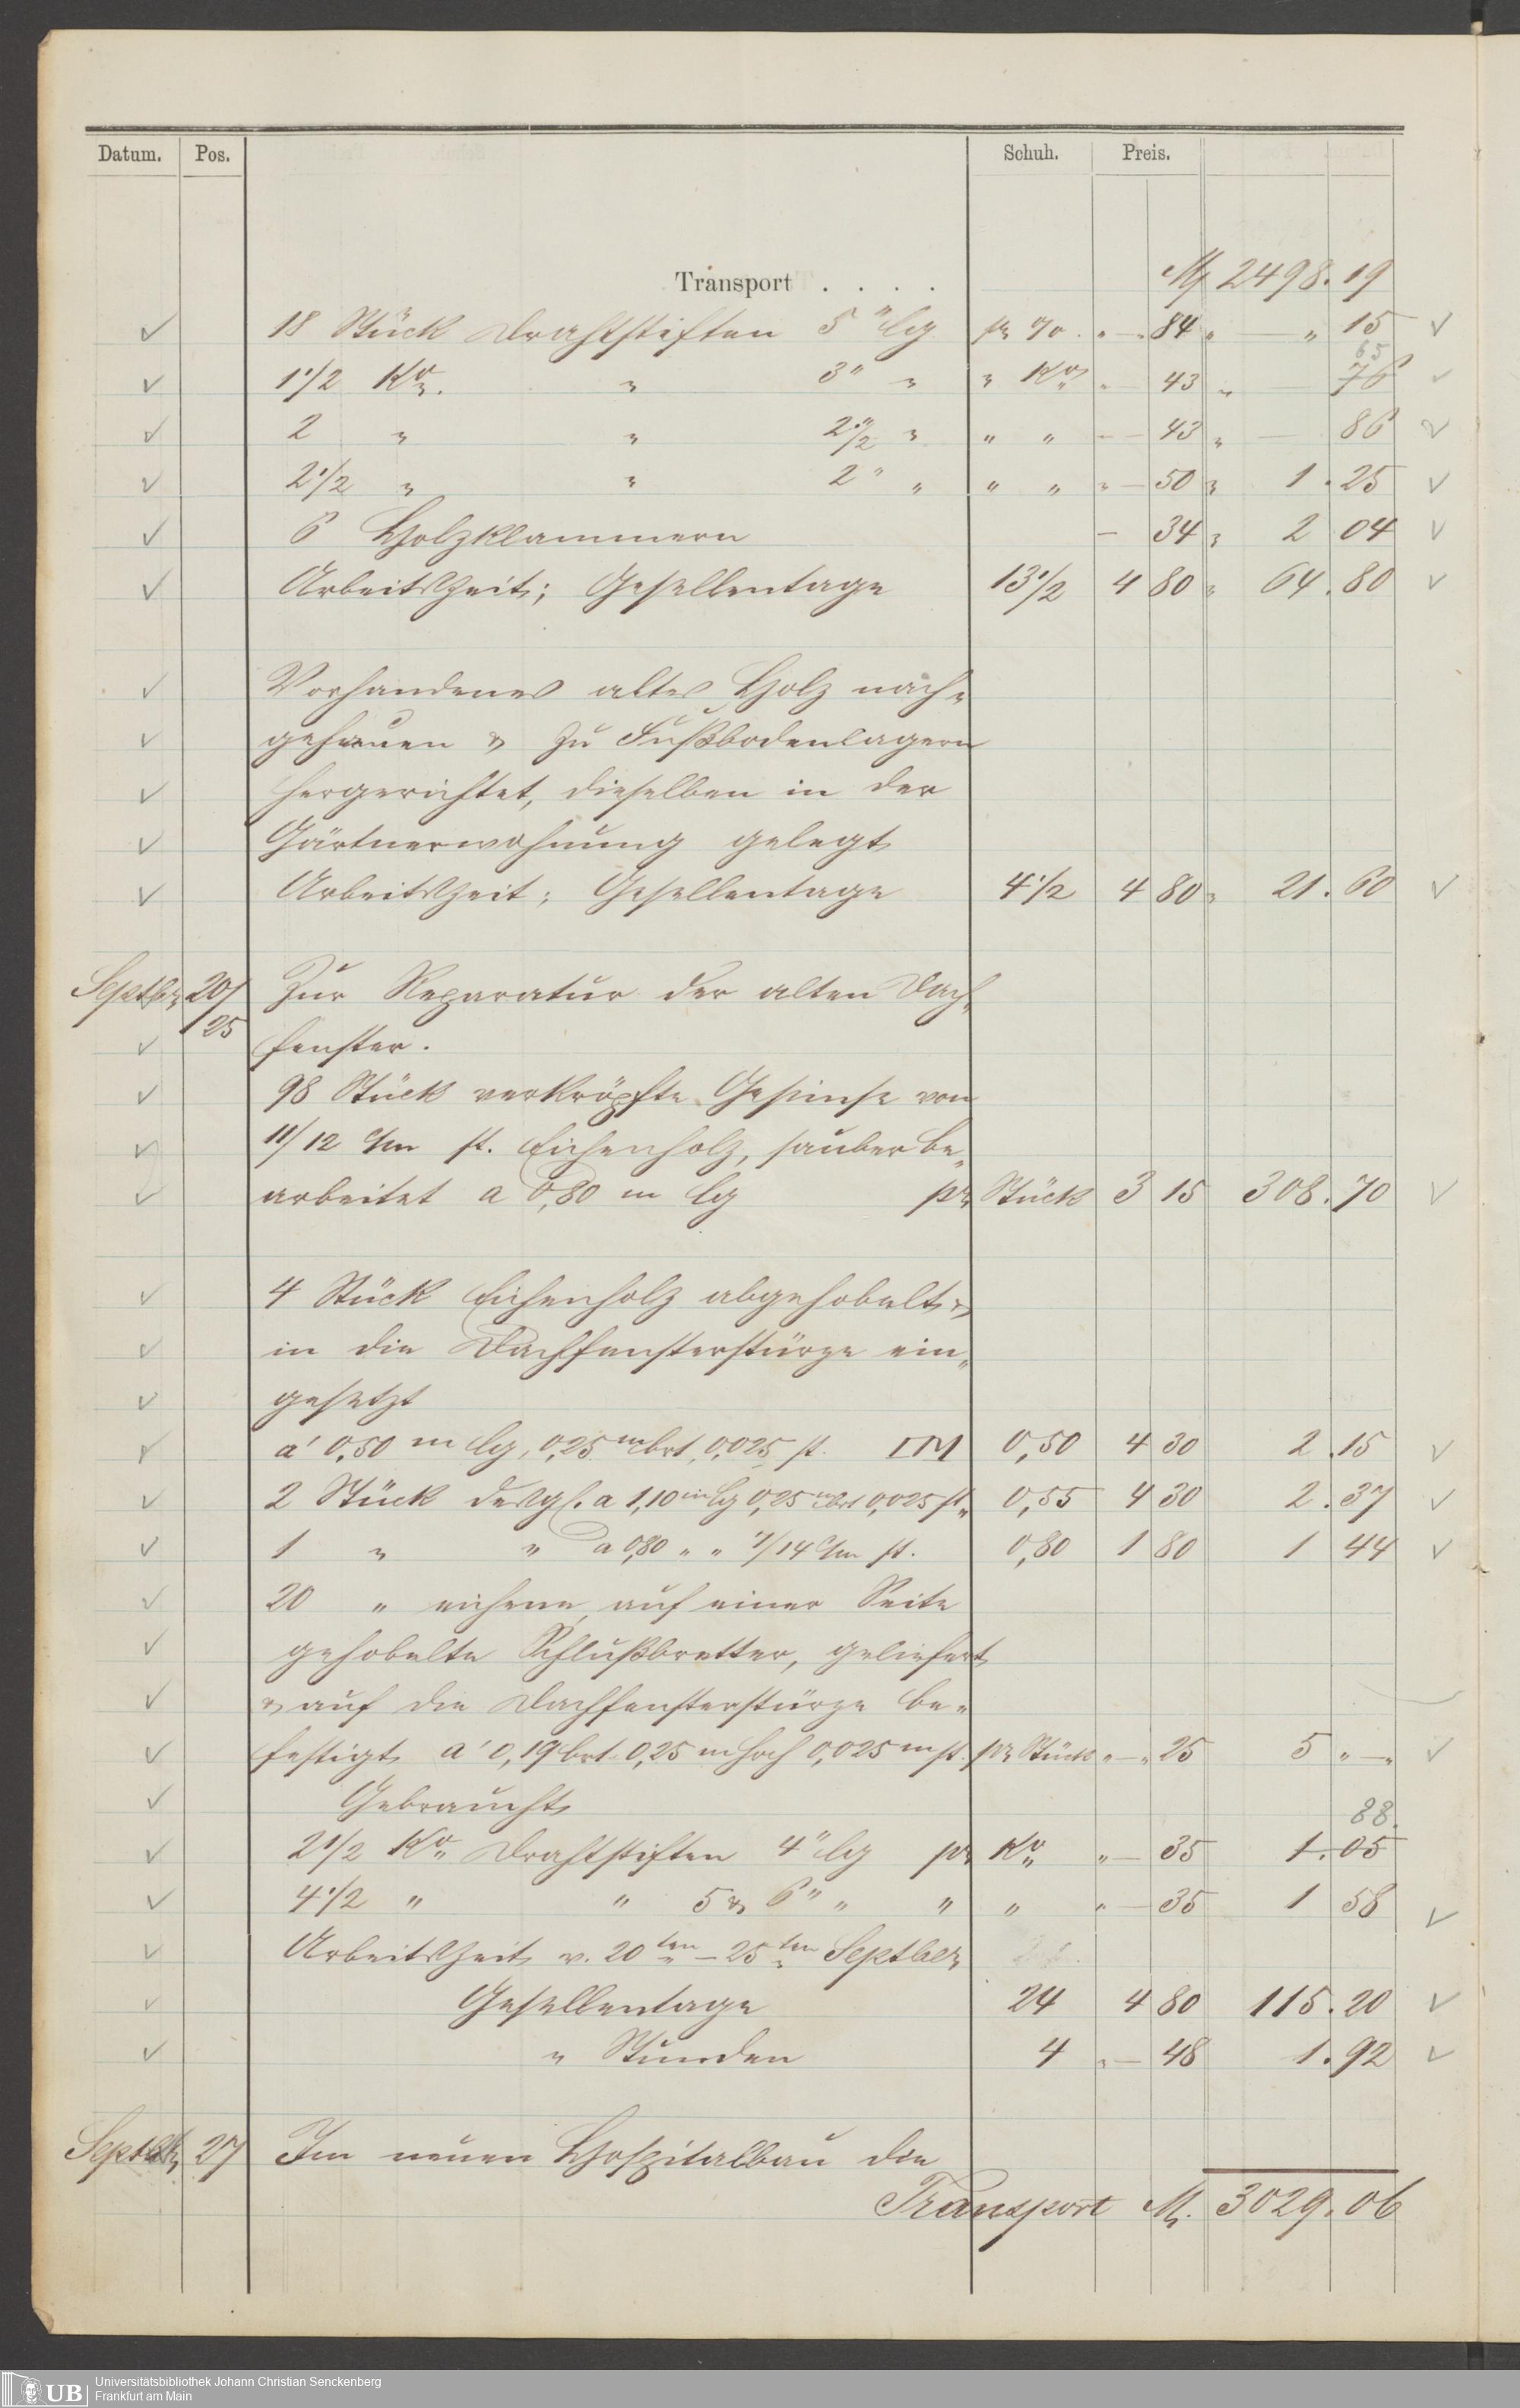 Datum. Pos. Schuh. Preis.
Transport . . . . M 2498. 19
18 Stück Drahtstiften 5" lg pr % . " — " 84 " — " 15
1 1/2 Ko. " 3" " " Ko " — 43 " — 76 65
2 " " 2 1/2" " " " — — 43 " — 86
2 1/2 " " 2" " " " " — 50 " 1 . 25
6 Holzklammern — 34 " 2 04
Arbeitszeit; Gesellentage 13 1/2 4 80 " 64 . 80
Vorhandenes altes Holz nach-
gehauen & zu Fußbodenlagern
hergerichtet, dieselben in der
Gärtnerwohnung gelegt
Arbeitszeit; Gesellentage 4 1/2 4 80 " 21 . 60
Septbr 20/25 Zur Reparatur der alten Dach-
fenster.
98 Stück verkröpfte Gesimse von
11/12 c/m st. Eichenholz, sauber be-
arbeitet a 0,80 m lg pr Stück 3 15 308 . 70
4 Stück Eichenholz abgehobelt &
in die Dachfensterstürze ein-
gesetzt
a' 0,50 m lg, 0,25 m brt, 0,025 st. □M 0,50 4 30 2 . 15
2 Stück desgl. a 1,10 m lg 0,25 m brt 0,025 st " 0,55 4 30 2 . 37
1 " " a 0,80 " " /14 c/m st. 0,80 1 80 1 44
20 " eichene, auf einer Seite
gehobelte Schlußbretter, geliefert
& auf die Dachfensterstürze be-
festigt a' 0,19 brt. 0,25 m hoch 0,025 m st. pr Stück " — " 25 5 " — "
Gebraucht 88
2 1/2 Ko Drahtstiften 4" lg pr Ko " — 35 1 . 05
4 1/2 " " 5 & 6" " " " " — 35 1 58
Arbeitszeit v. 20ten – 25ten Septber
Gesellentage 24 4 80 115 . 20
" Stunden 4 " — 48 1 . 92
Septbr 27 Im neuen Hospitalbau die
Transport M. 3029. 06
UB Universitätsbibliothek Johann Christian Senckenberg
Frankfurt am Main